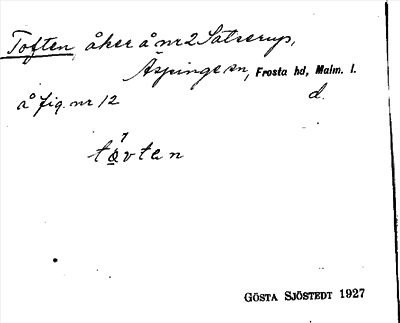 Toften, åker å nr 2 Satserup,
Äspinge sn, Frosta hd, Malm. l.
å fig. nr 12 d.
tåvten
GÖSTA SJÖSTEDT 1927